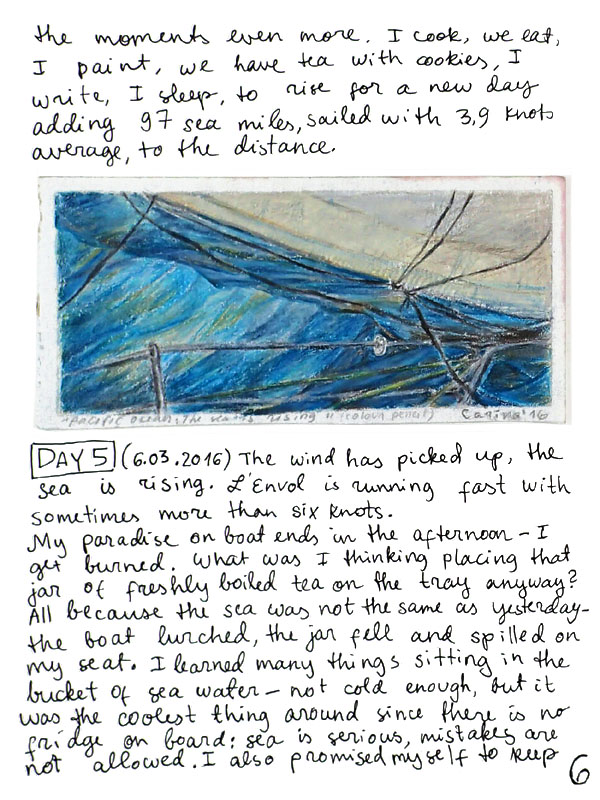 the moments even more. I cook, we eat,
I paint, we have tea with cookies, I
write, I sleep, to rise for a new day
adding 97 sea miles, sailed with 3,9 knots
average, to the distance.
"Pacific ocean, the sea is rising" (colour pencil) Carina '16
DAY 5 (6.03.2016) The wind has picked up, the
sea is rising. L'Envol is running fast with
sometimes more than six knots.
My paradise on boat ends in the afternoon – I
get burned. What was I thinking placing that
jar of freshly boiled tea on the tray anyway?
All because the sea was not the same as yesterday –
the boat lurched, the jar fell and spilled on
my seat. I learned many things sitting in the
bucket of sea water – not cold enough, but it
was the coolest thing around since there is no
fridge on board: sea is serious, mistakes are
not allowed. I also promised myself to keep
6